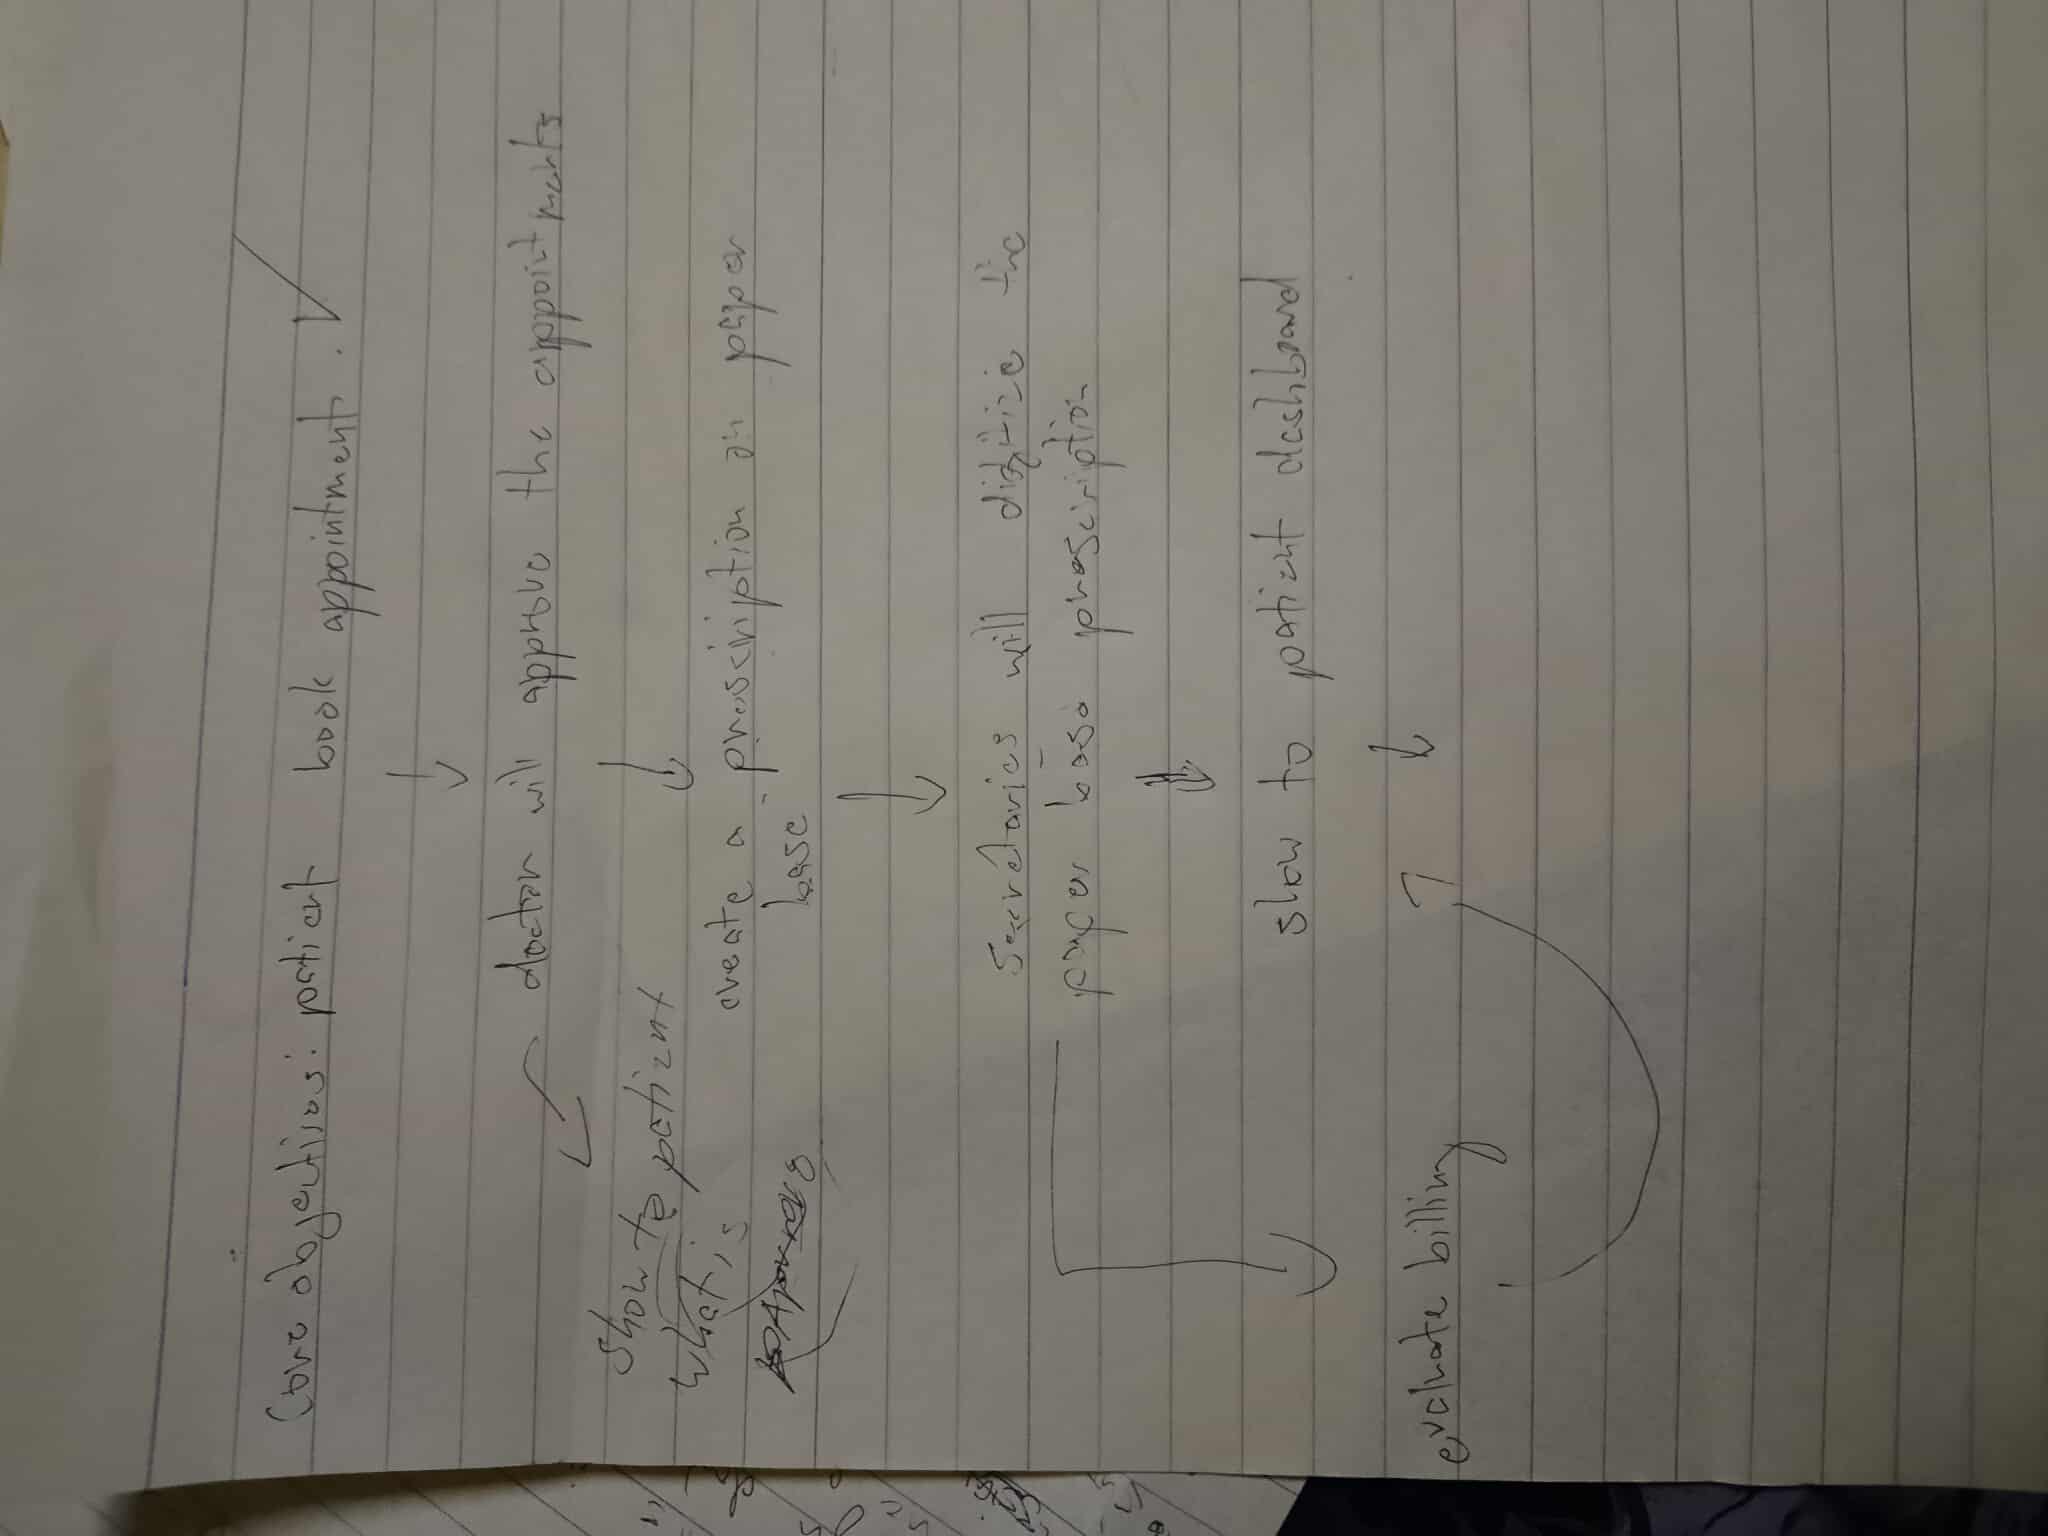 Core objectivos: patient book appointment.
doctor will approve the appointments
Show to patient
what is
Approved
create a prescription on paper
base
Secretaries will digitize the
paper base prescription
show to patient dashboard
evaluate billing